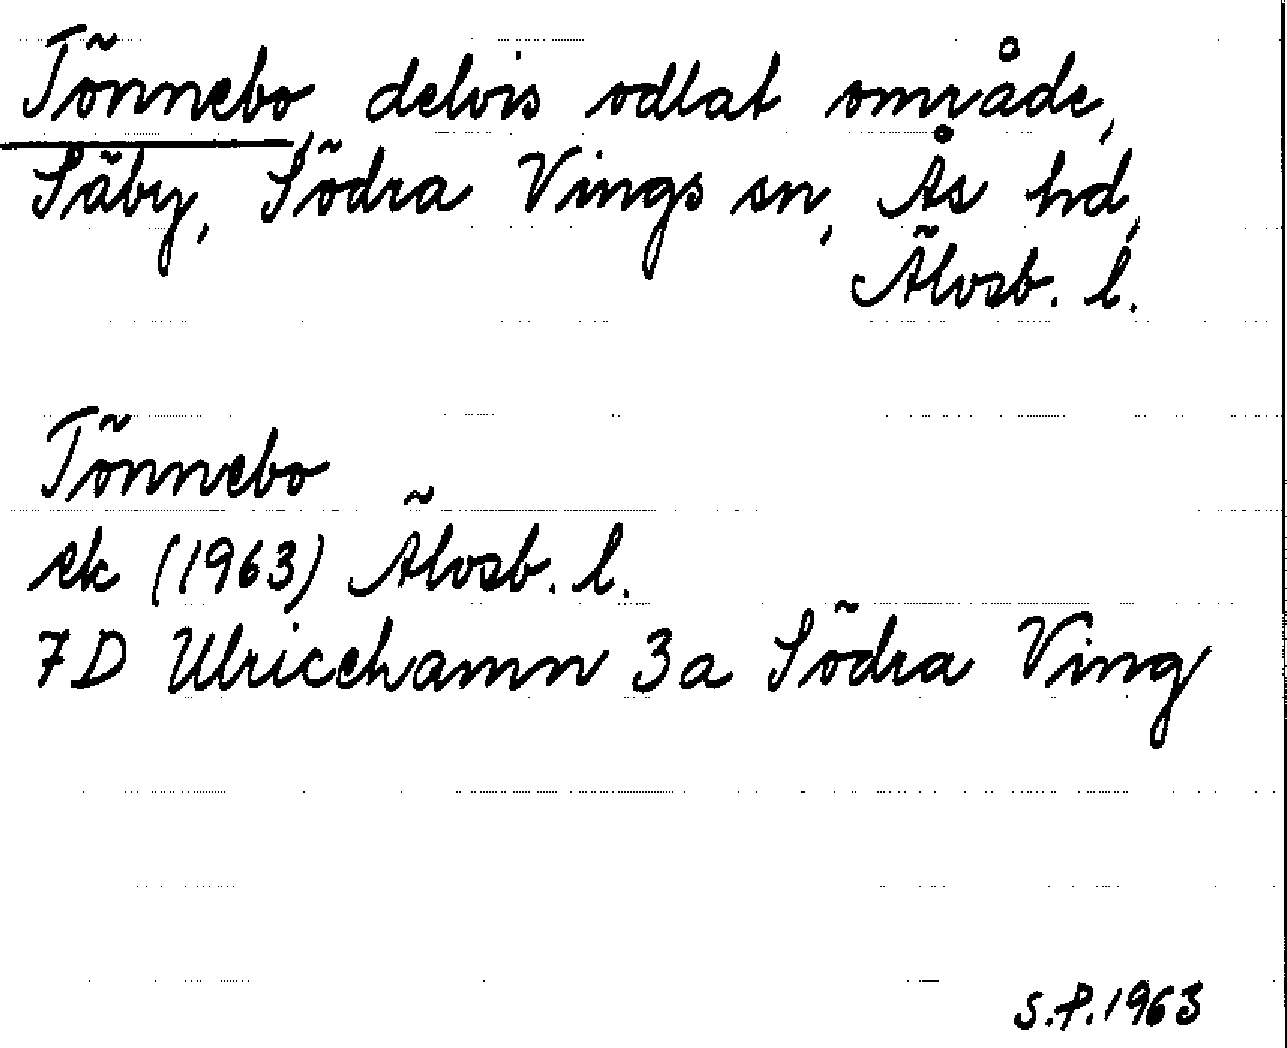 Tönnebo, delvis odlat område,
Säby, Södra Vings sn, Ås hd,
Älvsb. l.
Tönnebo
ek (1963) Älvsb. l.
7D Ulricehamn 3a Södra Ving
S.P. 1963